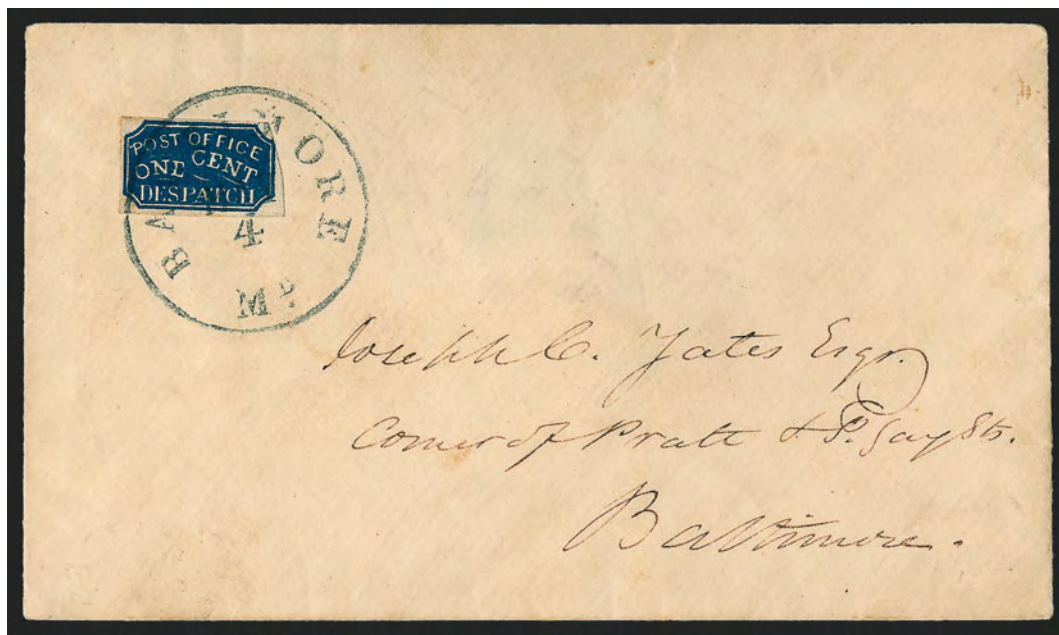 POST OFFICE
ONE CENT
DESPATCH
BALTIMORE
4
Md
Joseph C. Yates Esqr.
Corner of Pratt & So. Gay Sts.
Baltimore.